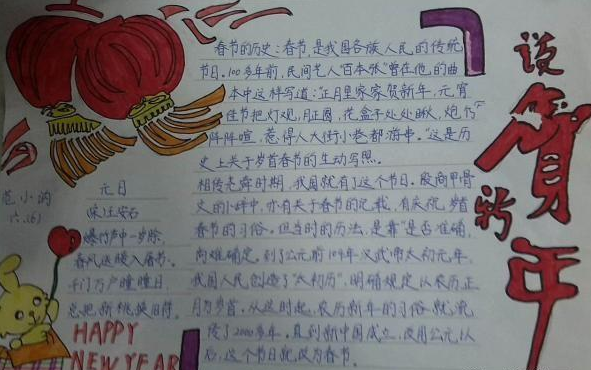 春节的历史：春节，是我国各族人民的传统
节日。100多年前，民间艺人"百本张"曾在他的曲
本中这样写道："正月里家家贺新年，元宵
佳节把灯观，月正圆，花盒子处处瞅，炮竹
阵阵喧，惹得人大街小巷都游串。"这是历
史上关于岁首春节的生动写照。
相传尧舜时期，我国就有了这个节日。殷商甲骨
文的卜辞中，亦有关于春节的记载，有庆祝岁首
春节的习俗。但当时的历法，是靠是否准确，
尚难确定。到了公元前104年汉武帝太初元年，
我国人民创造了"太初历"，明确规定以农历正
月为岁首。从这时起，农历新年的习俗就流
传了2000多年。直到新中国成立，改用公元以
后，这个节日就改为春节。
说贺新年
范小沟
六.(6)
元日
宋.王安石
爆竹声中一岁除，
春风送暖入屠苏。
千门万户曈曈日，
总把新桃换旧符。
HAPPY
NEW YEAR